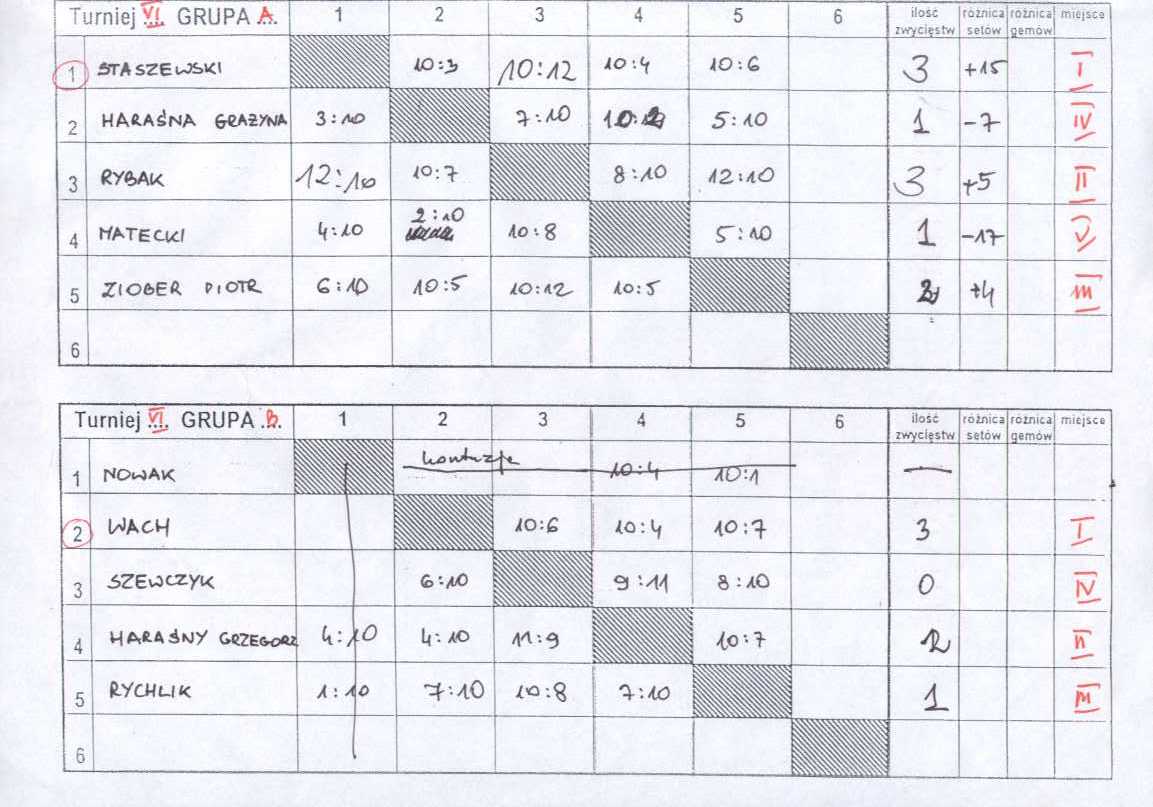 Turniej VI. GRUPA A. 1 2 3 4 5 6 ilość zwycięstw różnica setów różnica gemów miejsce
1 STASZEWSKI 10:3 10:12 10:4 10:6 3 +15 I
2 HARAŚNA GRAŻYNA 3:10 7:10 10:2 5:10 1 -7 IV
3 RYBAK 12:10 10:7 8:10 12:10 3 +5 II
4 MATECKI 4:10 2:10 10:8 5:10 1 -17 V
5 ZIOBER PIOTR 6:10 10:5 10:12 10:5 2 +4 III
6
Turniej VI. GRUPA B. 1 2 3 4 5 6 ilość zwycięstw różnica setów różnica gemów miejsce
1 NOWAK kontuzja 10:4 10:1 —
2 WACH 10:6 10:4 10:7 3 I
3 SZEWCZYK 6:10 9:11 8:10 0 IV
4 HARAŚNY GRZEGORZ 4:10 4:10 11:9 10:7 2 II
5 RYCHLIK 1:10 7:10 10:8 7:10 1 III
6